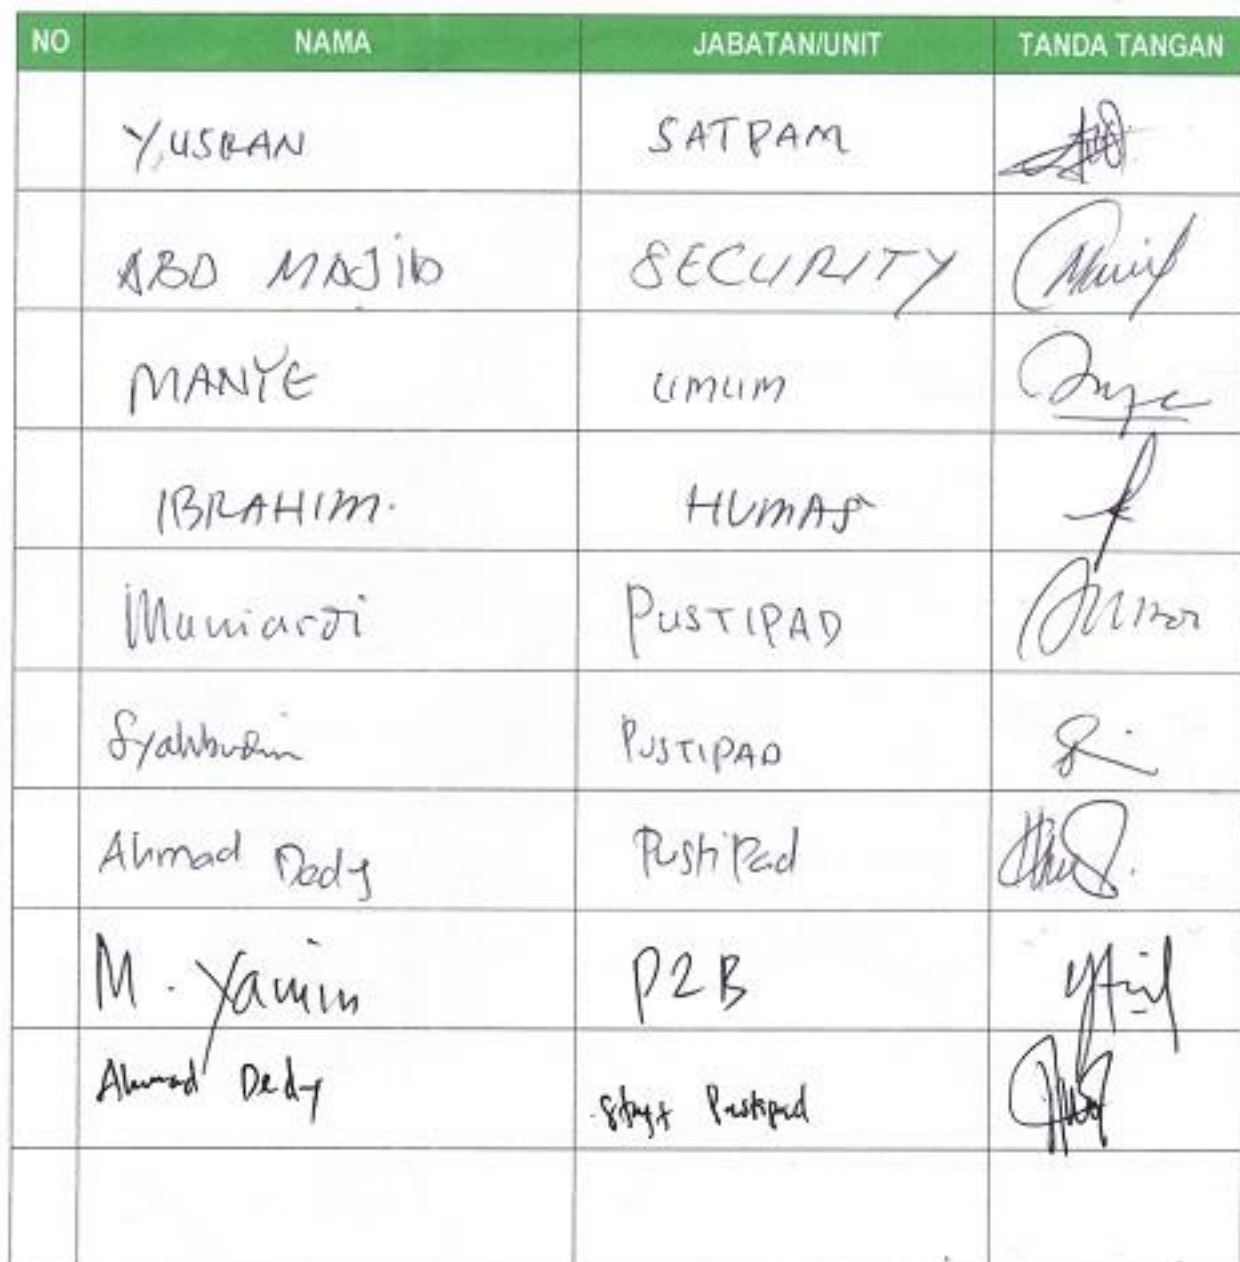 NO NAMA JABATAN/UNIT TANDA TANGAN
YUSRAN SATPAM
ABD MAJID SECURITY
MANYE UMUM
IBRAHIM. HUMAS
PUSTIPAD
Syahbudin PUSTIPAD
Ahmad Dedy PustiPad
M. Yamin P2B
Ahmad Dedy Staff Pustipad